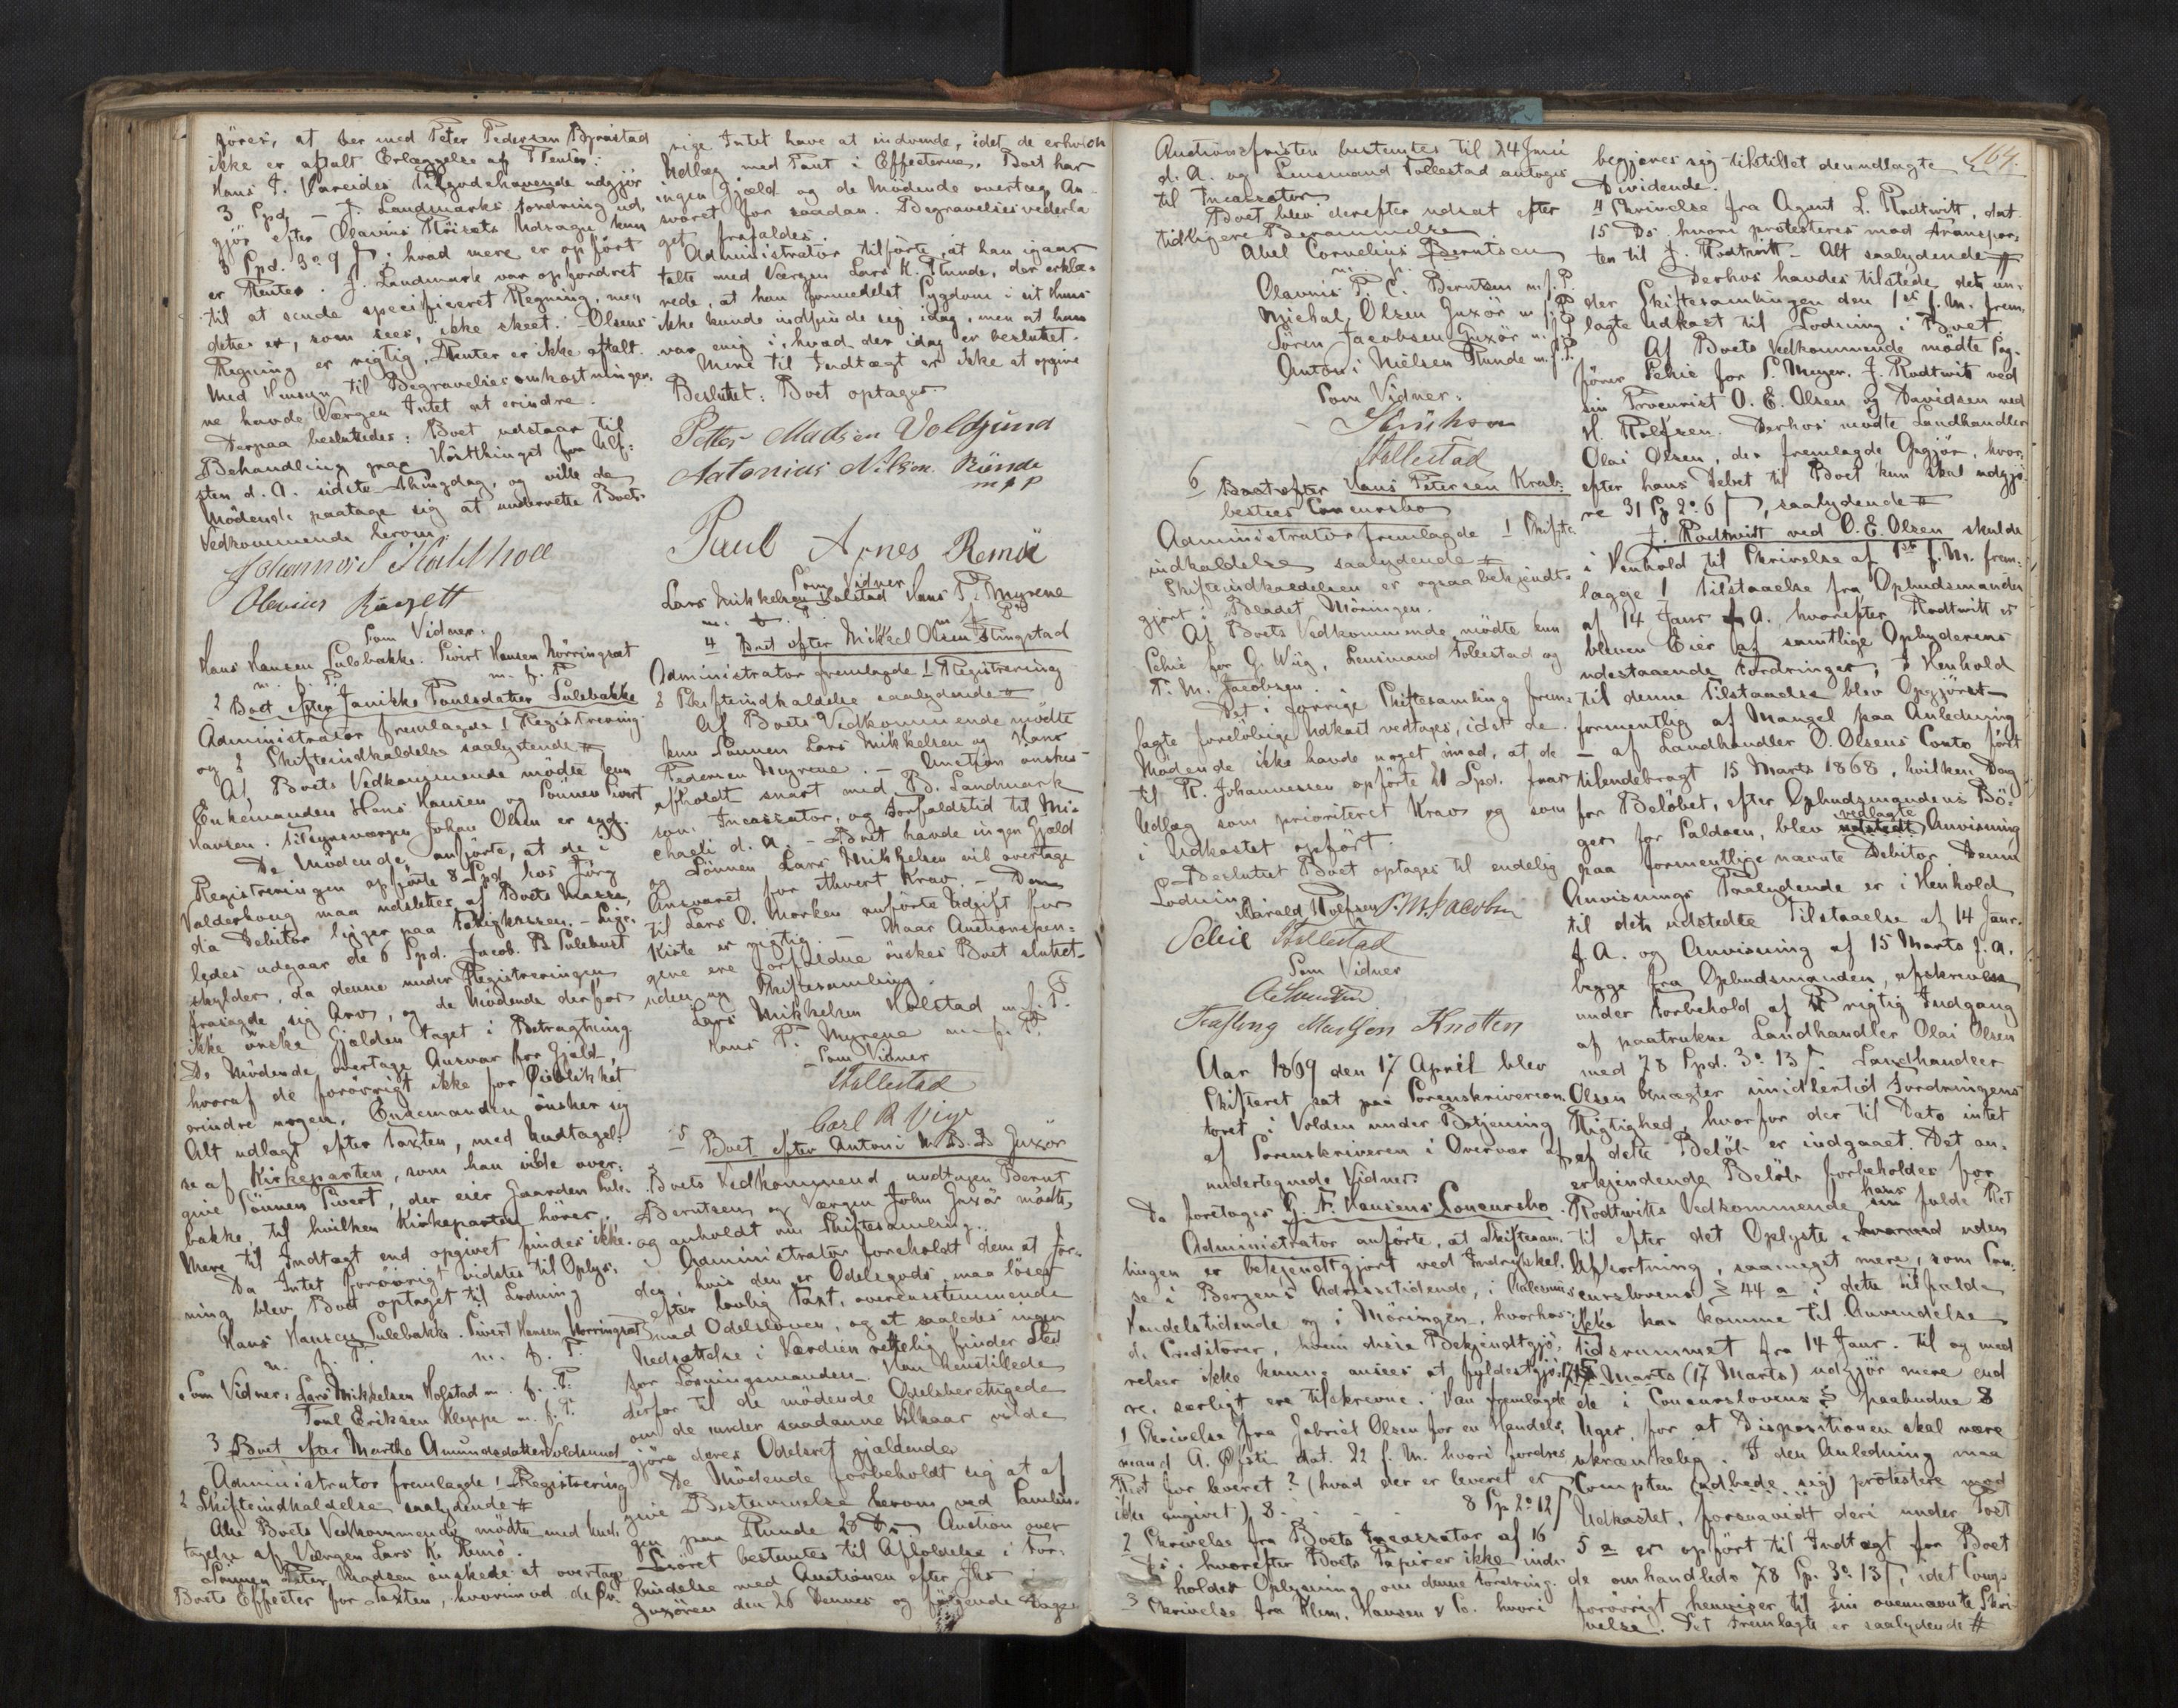 föres, at der med Peter Pedersen Bjrustad
ikke er aftalt Erlæggelse af Renter.
Hans J. Vareides Tilgodehavende udgjör
3 Spd. - J. Landmarks Fordring ud-
gjör efter Olavius Röisets Udsagn kun
3 Spd. 3o 9 ſ; hvad mere er opfört
er Renter. J. Landmark var opfordret
til at sende specificeret Regning, men
dette er, som sees, ikke skeet. Olsens
Regning er rigtig, Renter er ikke aftalt.
Med Hensyn til Begravelsesomkostningen
ne havde Værgen Intet at erindre.
Derpaa besluttedes: Boet udstaar til
Behandling paa Höstthinget for Ulf-
sten d. A. sidste Thingdag, og ville de
Mödende paatage sig at underrette Boets
Vedkommende herom.
Johannes
Olavius
Som Vidner.
Hans Hansen Sulebakke. Sivert Hansen Nörringsæt
m. f. P. m. f. P.
2 Boet efter Janikke Poulsdatter Sulebakke
Administrator fremlagde 1 Registrering
og 2 Skifteindkaldelse saalydende #
Af Boets Vedkommende mödte kun
Enkemanden Hans Hansen og Sönnen Sivert
Hansen. Tilsynsværgen Johan Olsen er syg.
De Mödende anförte, at de i
Registreringen opförte 8 Spd. hos Jörg
Valderhoug maa udslettes af Boets Masse,
da Debitor ligger paa Fattigkassen. - Lige-
ledes udgaar de 6 Spd. Jacob. P. Sulebust
skylder, da denne under Registreringen
frasagde sig Arv, og de Mödende derfor
ikke önske Gjælden taget i Betragtning.
De Mödende overtage Ansvar for Gjæld,
hvoraf de forövrigt ikke for Öieblikket
erindre nogen. Enkemanden önsker sig
Alt udlagt efter Taxten, med Undtagel-
se af Kirkeparten, som han vilde over-
give Sönnen Sivert, der eier Gaarden Sule-
bakke, til hvilken Kirkeparten hörer.
Mere til Indtægt end opgivet findes ikke.
Da Intet forövrigt vidstes til Oplys-
ning blev Boet optaget til Lodning
Hans Hansen Sulebakke. Sivert Hansen Norringsæt
m. f. P. m. f. P.
Som Vidner: Lars Mikkelsen Holstad m. f. P.
Poul Eriksen Kleppe m. f. P.
3 Boet efter Marthe Amundsdatter Voldsund
Administrator fremlagde 1 Registrering
2 Skifteindkaldelse saalydende #
Alle Boets Vedkommende mödte med Und-
tagelse af Værgen Lars K. Runö.
Sönnen Peter Madsen önskede at overtage
Boets Effecter for Taxten, hvorimod de Öv-
rige Intet have at indvende, idet de erholdt
Udlæg med Pant i Effecterne. Boet har
ingen Gjæld og de Mödende overtage An-
svaret for saadan. Begravelsesvederla
get frafaldes.
Administrator tilförte, at han igaar
talte med Værgen Lars K. Runde, der erklæ-
rede, at han formedelst Sygdom i sit Huus
ikke kunde indfinde sig idag, men at han
var enig i, hvad der idag er besluttet.
Mere til Indtægt er ikke at opgive
Besluttet: Boet optages
Petter Madsen Voldsund
Antonius Nilsen Runde
m f P
Paul Arnes Remöi
Som Vidner
Lars Mikkelsen Holstad Hans P. Myrene
m. f. P. m. f. P.
4 Boet efter Mikkel Olsen Stingstad
Administrator fremlagde 1 Registrering
2 Skifteindkaldelse saalydende #
Af Boets Vedkommende mödte
kun Sönnen Lars Mikkelsen og Hans
Pedersen Myrene. - Auction önskes
afholdt snart med B. Landmark
som Incassator, og Forfaldstid til Mi-
chaeli d. A. - Boet havde ingen Gjæld
og Sönnen Lars Mikkelsen vil overtage
Ansvaret for ethvert Krav. - Den
til Lars O. Morken anförte Udgift for
Kiste er rigtig. - Naar Auctionspen-
gene ere forfaldne önskes Boet sluttet
uden ny Skiftesamling.
Lars Mikkelsen Holstad m. f. P.
Hans P. Myrene m. f. P.
Som Vidner
Stellestad
Carl R Vige
5 Boet efter Antoni N. B. D. Juxör
Boets Vedkommend undtagen Bernt
Berntsen og Værgen John Juxör mödte,
og anholdt om Skiftesamling.
Administrator foreholdt dem at Jor-
den, hvis den er Odelsgods, maa löses
efter lovlig Taxt, overensstemmende
med Odelsloven, og at saaledes ingen
Nedsættelse i Værdien rettelig finder Sted
for Lösningsmanden. Han henstillede
derfor til de mödende Odelsberettigede
om de under saadanne Vilkaar vilde
gjöre deres Odelsret gjældende
De Mödende forbeholdt sig at af
give Bestemmelse herom ved Samlin-
gen paa Runde 28 Ds. Auction over
Lösöret bestemtes til Afholdelse i For-
bindelse med Auctionen efter Jhs
Juxören den 26 Dennes og fölgende Dage
Auctionsfristen bestemtes til 24 Juni
d. A. og Lensmand Tollestad antoges
til Incassator
Boet blev derefter udsat efter
tidligere Berammelse
Abel Cornelius Berntsen
m. f. P.
Olavnis P. C. Berntsen m. f. P.
Michal Olsen Juxör m. f. P.
Sören Jacobsen Juxör m. f. P.
Antoni Nielsen Runde m. f. P.
Som Vidner.
Stellestad
6 Boet efter Hans Petersen Krab-
besties Concursbo
Administrator fremlagde 1 Skifte
indkaldelse saalydende #
Skifteindkaldelsen er ogsaa bekjendt-
gjort i Bladet Möringen.
Af Boets Vedkommende mödte kun
Schie for G. Wiig, Lensmand Tollestad og
P. M. Jacobsen.
Det i forrige Skiftesamling frem-
lagte forelöbige Udkast vedtages, idet de
Mödende ikke havde noget imod, at de
til R. Johannessen opförte 21 Spd. faar
Udlæg som prioriteret Krav og som
i Udkastet opfört.
Besluttet Boet optages til endelig
Lodning
Harald Rolfsen P. M. Jacobsen
Schie Stellestad
Som Vidner
Knotten
Aar 1869 den 17 April blev
Skifteret sat paa Sorenskrivercon-
toret i Volden under Betjening
af Sorenskriveren i Overvær af
undertegnede Vidner.
Da foretages G. F. Hansens Concursbo.
Administrator anförte, at Skiftesam-
lingen er bekjendtgjort ved Indrykkel-
se i Bergens Adressetidende, i Aalesunds
Handelstidende og i Möringen, hvorhos
de Creditorer, hvem disse Bekjendtgjö-
relser ikke kunne ansees at fyldestgjö-
re, særligt ere tilskrevne. Han fremlagde
1 Skrivelse fra Gabriel Olsen for en Handels-
mand A. Öfsti dat. 22 f. M. hvori fordres
Ret for leveret ? (hvad der er leveret er
ikke angivet) 8. . . . 8 Sp 2o 12 ſ
2 Skrivelse fra Boets Incassator af 16
Ds. hvorefter Boets Papirer ikke inde-
holder Oplysning om denne Fordring.
3 Skrivelse fra Klem. Hansen & Co. hvori
164.
begjæres sig tilstillet den udlagte
Dividende.
4 Skrivelse fra Agent L. Rodtwitt, dat.
15 Ds. hvori protesteres mod Transpor-
ten til J. Rodtwitt - Alt saalydende #
Derhos havdes tilstede det un-
der Skiftesamlingen den 1ste f. M. frem-
lagte Udkast til Lodning i Boet.
Af Boets Vedkommende mödte Sag-
förer Schie for S. Meyer. J. Rodtwitt ved
sin Procurist O. E. Olsen og Davidsen ved
H. Rolfsen. Derhos mödte Landhandler
Olai Olsen, der fremlagde Opgjör, hvor-
efter hans Debet til Boet kun skal udgjö-
re 31 Sp 2o 6 ſ, saalydende #
J. Rodtwitt ved O. E. Olsen skulde
i Henhold til Skrivelse af 1ste f. M. frem-
lægge 1 Tilstaaelse fra Opbudsmanden
af 14 Janr f. A. hvorefter Rodtwitt er
bleven Eier af samtlige Opbyderens
udestaaende Fordringer; I Henhold
til denne Tilstaaelse blev Opgjöret
formentlig af Mangel paa Anledning
- af Landhandler O. Olsens Conto först
tilendebragt 15 Marts 1868, hvilken Dag
for Belöbet, efter Opbudsmandens Bö-
ger for Saldoen, blev vedlagte udstedt Anvisning
paa formentlige nævnte Debitor. Denne
Anvisnings Paalydende er i Henhold
til den udstedte Tilstaaelse af 14 Janr.
f. A. og Anvisning af 15 Marts f. A.
begge fra Opbudsmanden, afskreven
under Forbehold af rigtig Indgang
af paatrukne Landhandler Olai Olsen
med 78 Spd. 3o 13 ſ. Landhandler
Olsen benægter imidlertid Fordringens
Rigtighed, hvorfor der til Dato intet
af dette Belöb er indgaaet. Det an-
erkjendende Belöb forbeholdes for
Rodtwitts Vedkommende hans sin fulde Ret
til efter det Oplyste hvormed uden
Afkortning, saameget mere, som Con-
curslovens § 44 a i dette Tilfælde
ikke kan komme til Anvendelse
Tidsrummet fra 14 Janr. til og med
15 Marts (17 Marts) udgjör mere end
de i Concurslovens § paabudne 8
Uger, for at Dispositionen skal være
ukrænkelig. I den Anledning maa
Compten (udbede sig) protestere mod
Udkastet, forsaavidt deri under Post
5 a er opfört til Indtægt for Boet
de omhandlede 78 Sp. 3o 13 ſ, idet Comp.
forövrigt henviser til sin ovennævnte Skri-
velse. Det Fremlagte er saalydende #